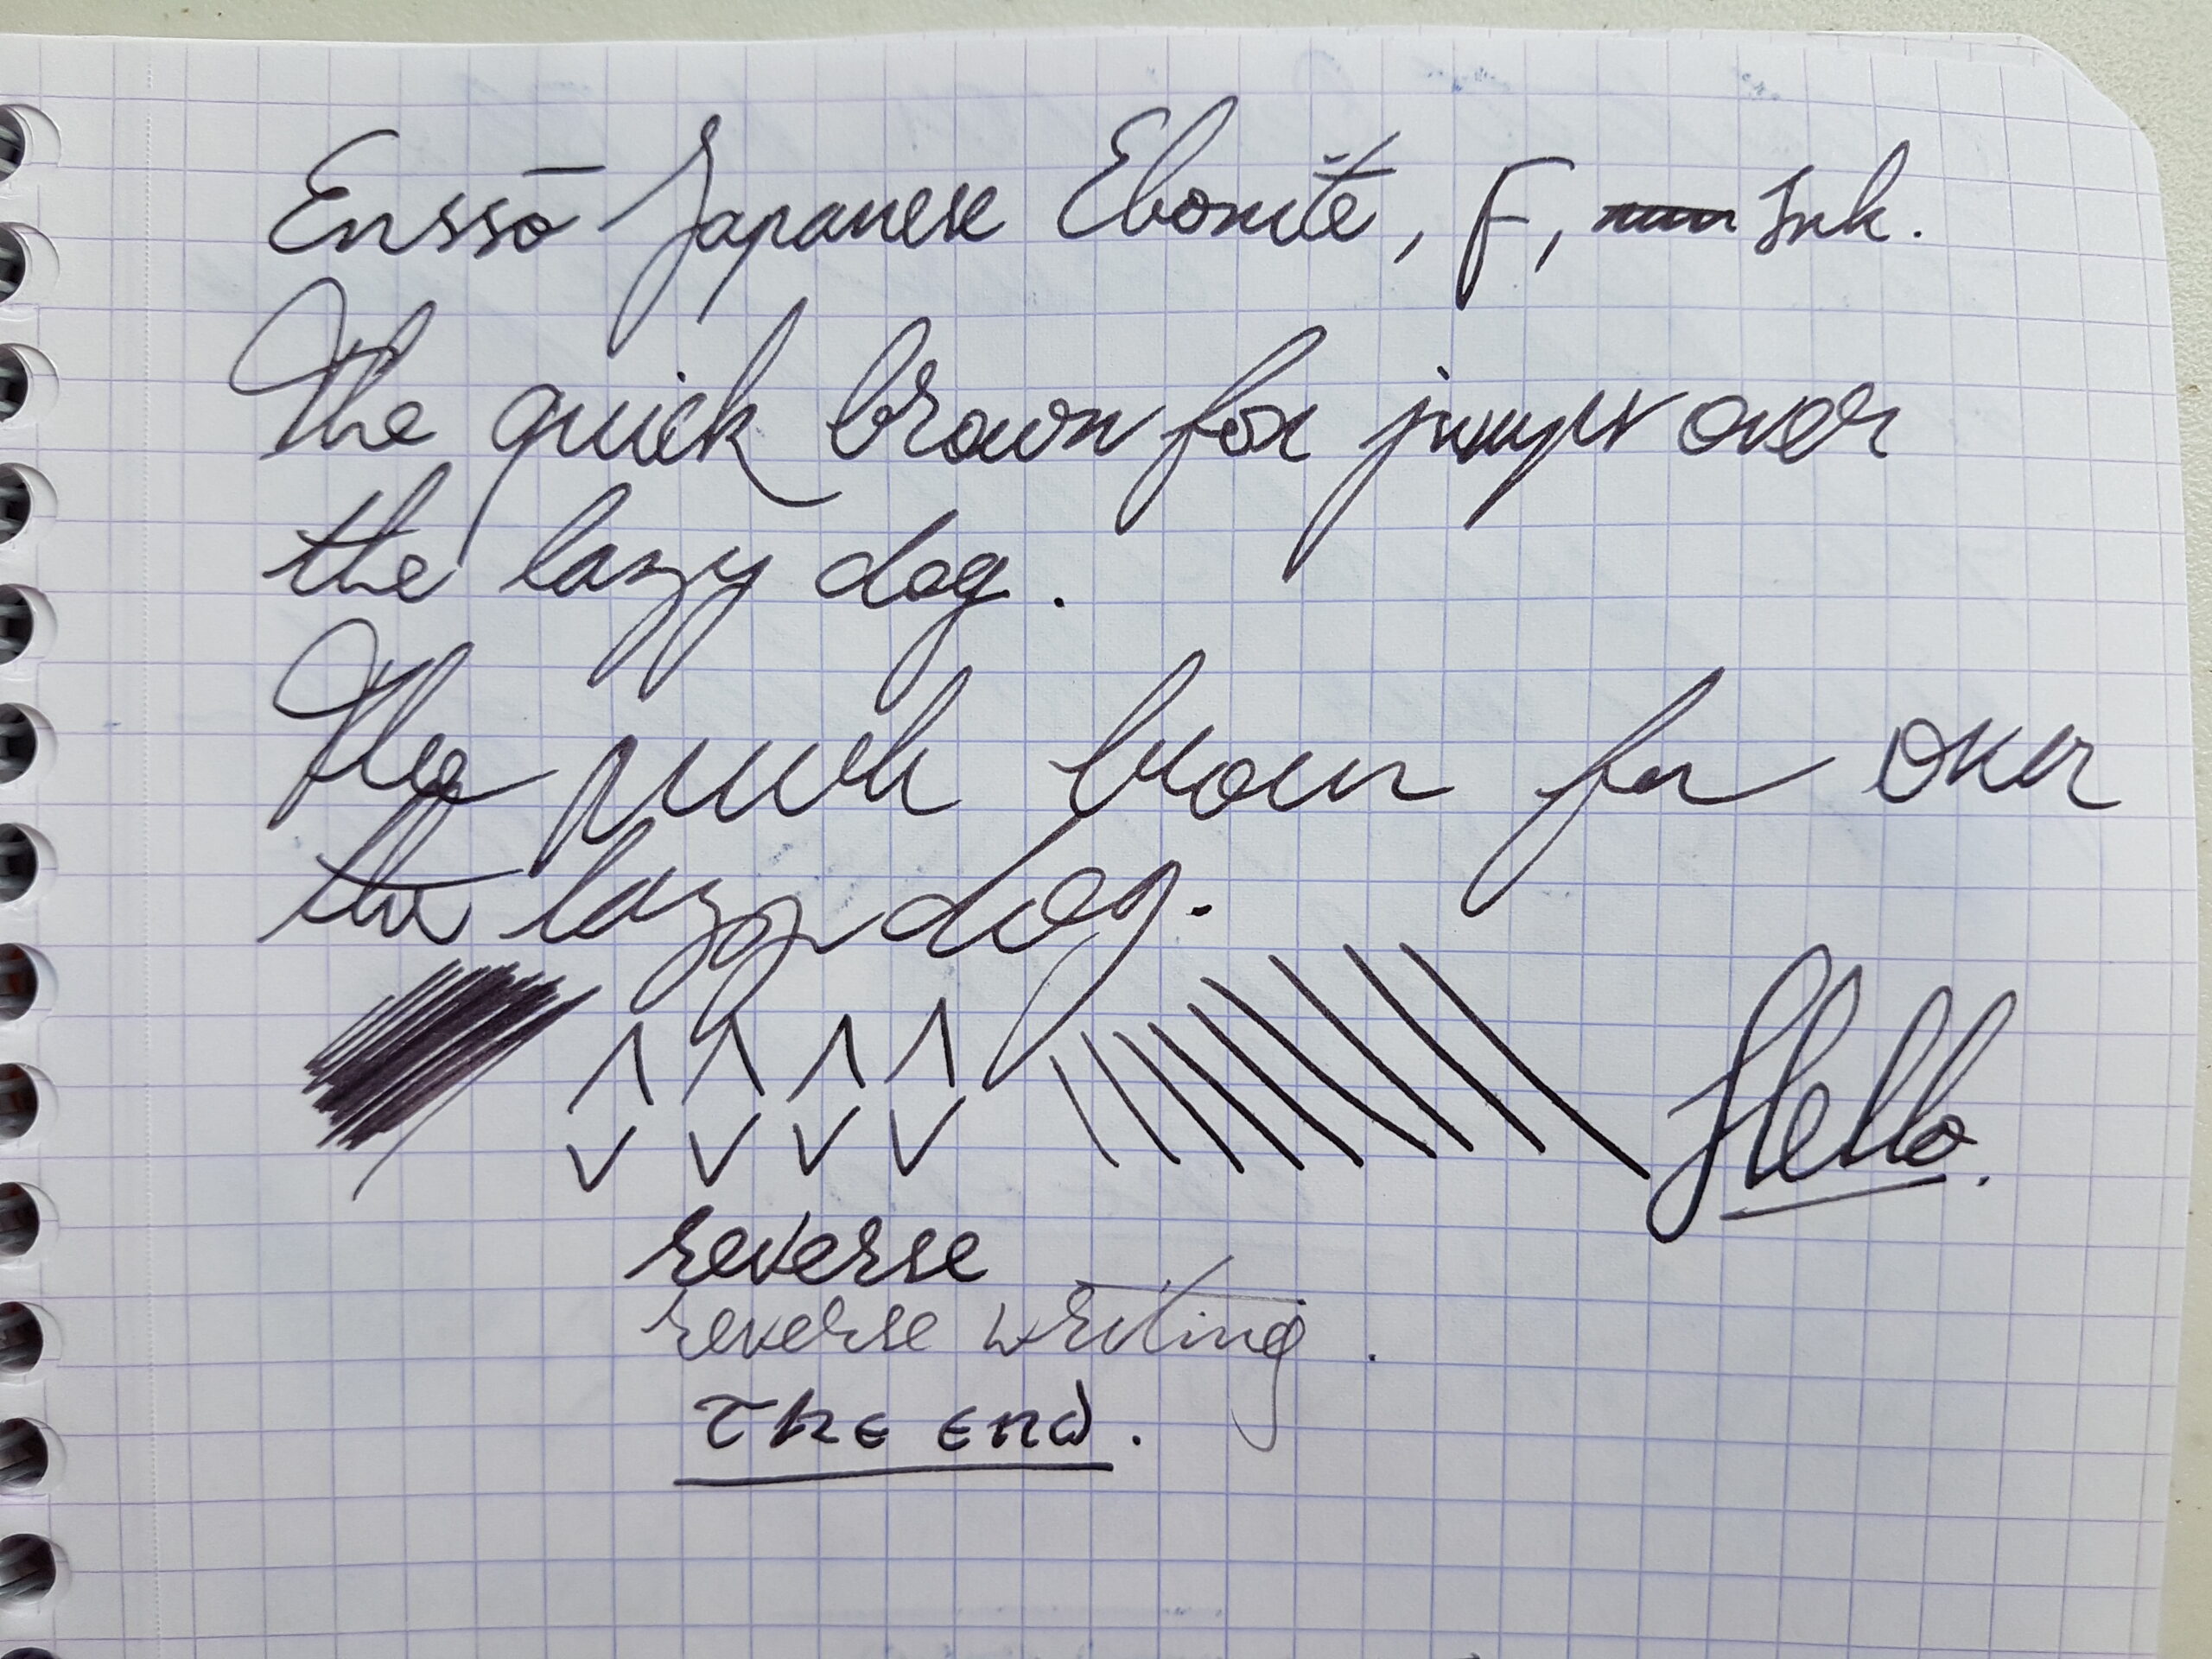 Enssō Japanese Ebonite, F, Ink.
The quick brown fox jumps over
the lazy dog.
The quick brown fox over
the lazy dog.
Hello.
reverse
reverse writing.
The end.